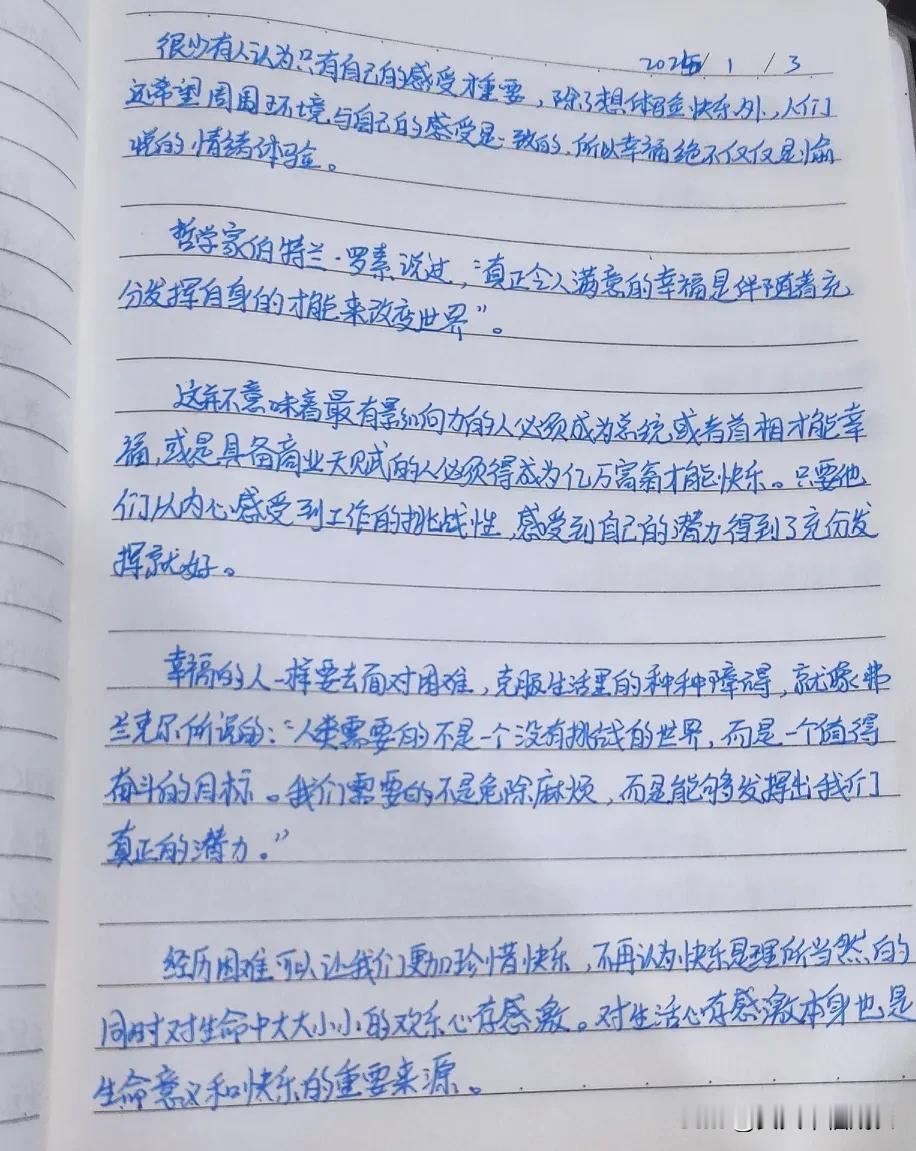 2025/1/3
很少有人认为只有自己的感受才重要，除了想体验快乐外，人们
还希望周围环境与自己的感受是一致的，所以幸福绝不仅仅是愉
悦的情绪体验。
哲学家伯特兰·罗素说过，“真正令人满意的幸福是伴随着充
分发挥自身的才能来改变世界”。
这并不意味着最有影响力的人必须成为总统或者首相才能幸
福，或是具备商业天赋的人必须得成为亿万富翁才能快乐。只要他
们从内心感受到工作的挑战性，感受到自己的潜力得到了充分发
挥就好。
幸福的人一样要去面对困难，克服生活里的种种障碍，就像弗
兰克尔所说的：“人类需要的不是一个没有挑战的世界，而是一个值得
奋斗的目标。我们需要的不是免除麻烦，而是能够发挥出我们
真正的潜力。”
经历困难可以让我们更加珍惜快乐，不再认为快乐是理所当然的
同时对生命中大大小小的欢乐心存感激。对生活心存感激本身也是
生命意义和快乐的重要来源。